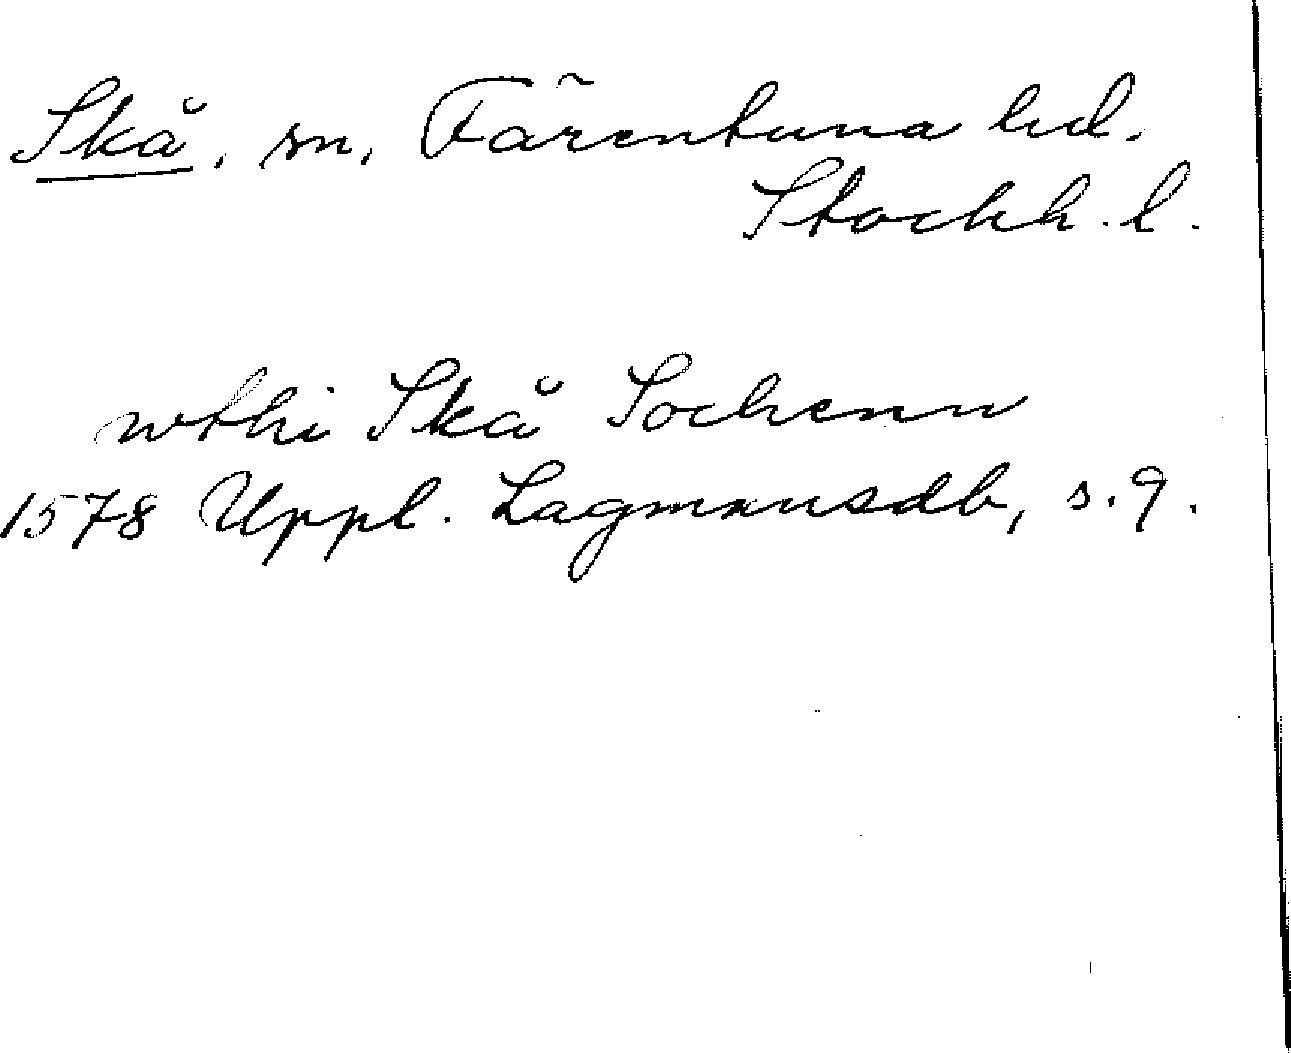 Skå, sn, Färentuna hd.
Stockh. l.
wthi Skå Sochenn
1578 Uppl. Lagmansdb, s. 9.